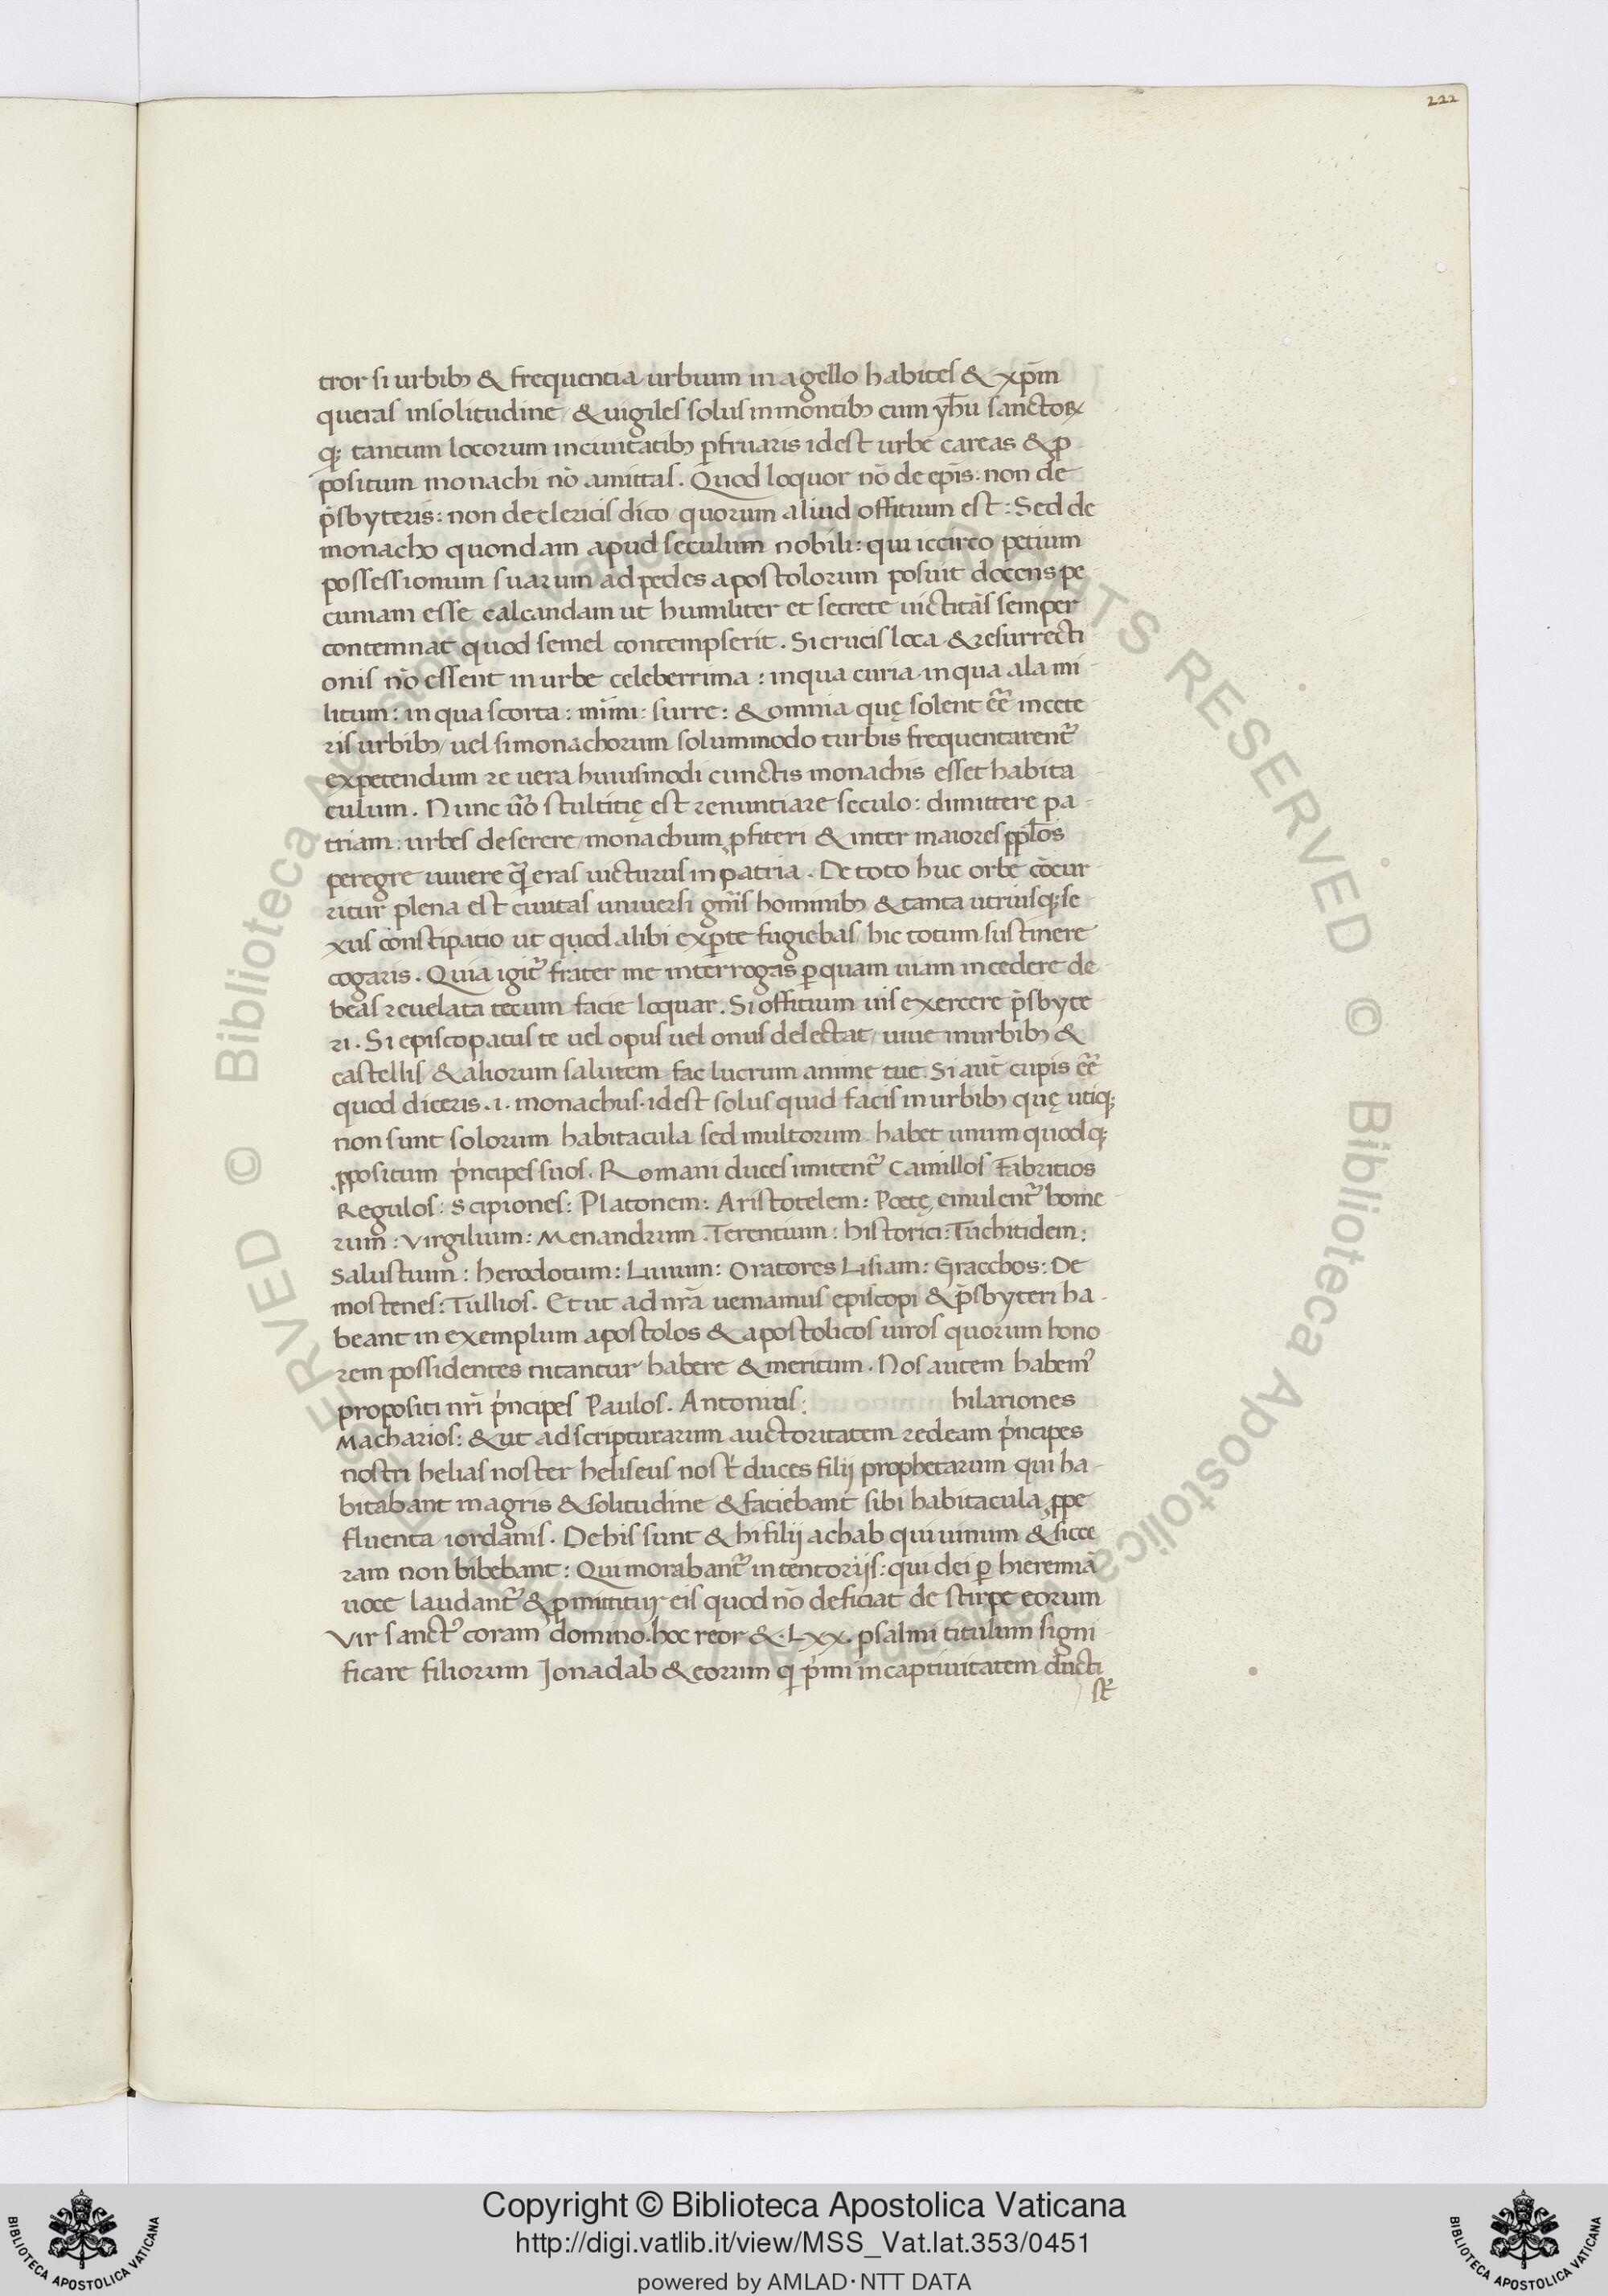 222
tror si urbibꝫ & frequentia urbium in agello habites & xp̄m
queras in solitudine / & uigiles solus in montibꝫ cum yħu sanctoꝝ
qꝫ tantum locorum in ciuitatibꝫ ꝑfruaris idest urbe careas & ꝓ
positum monachi nō amittas. Quod loquor nō de ep̄is: non de
p̄sbyteris: non de clericis dico quorum aliud offitium est: Sed de
monacho quondam apud seculum nobili: qui iccirco petium
possessionum suarum ad pedes apostolorum posuit docens pe
cuniam esse calcandam ut humiliter et secrete uictitās semper
contemnat quod semel contempserit. Si crucis loca & resurrecti
onis nō essent in urbe celeberrima: in qua curia in qua ala mi
litum: in qua scorta: mimi: surre: & omnia quę solent eē̄ in cete
ris urbibꝫ / uel si monachorum solummodo turbis frequentarent᷑
expetendum re uera huiusmodi cunctis monachis esset habita
culum. Nunc ūo stultitię est renuntiare seculo: dimittere pa
triam: urbes deserere / monachum ꝓfiteri & inter maiores ppl̄os
peregre uiuere q̄ eras uicturus in patria. De toto huc orbe cōcur
ritur plena est ciuitas uniuersi gn̄is hominibꝫ & tanta utriusqꝫ se
xus constipatio ut quod alibi ex ꝑte fugiebas / hic totum sustinere
cogaris. Quia igit᷑ frater me interrogas ꝑ quam uiam incedere de
beas reuelata tecum facie loquar. Si offitium uis exercere p̄sbyte
ri. Si episcopatus te uel opus uel onus delectat / uiue in urbibꝫ &
castellis & aliorum salutem fac lucrum anime tue. Si aut̄ cupis eē̄
quod diceris .i. monachus. idest solus quid facis in urbibꝫ quę utiqꝫ
non sunt solorum habitacula sed multorum. habet unum quodqꝫ
ꝓpositum p̍ncipes suos. Romani duces imitent᷑ Camillos Fabritios
Regulos: Scipiones: Platonem: Aristotelem: Poetę emulent᷑ home
rum: Virgilium: Menandrum. Terentium: historici: Tuchitidem:
Salustium: herodotum: Liuium: Oratores Lisiam: Gracchos: De
mostenes: Tullios. Et ut ad nr̄ā ueniamus episcopi & p̄sbyteri ha
beant in exemplum apostolos & apostolicos uiros quorum hono
rem possidentes nitantur habere & meritum. Nos autem habem᷒
propositi nr̄i p̍ncipes Paulos. Antonius: hilariones
Macharios: & ut ad scripturarum auctoritatem redeam p̍ncipes
nostri helias noster heliseus nost̍ duces filij prophetarum qui ha
bitabant in agris & solitudine & faciebant sibi habitacula ꝓpe
fluenta iordanis. De his sunt & hi filij achab qui uinum & sice
ram non bibebant: Qui morabant᷑ in tentorijs: qui dei ꝑ hieremiā
uoce laudant᷑ & ꝓmittitur eis quod nō deficiat de stirpe eorum
Vir sanct᷒ coram domino. hoc reor & .Lxx. psalmi titulum signi
ficare filiorum Jonadab & eorum q̍ p̍mi in captiuitatem ducti
st̄
Copyright © Biblioteca Apostolica Vaticana
http://digi.vatlib.it/view/MSS_Vat.lat.353/0451
powered by AMLAD·NTT DATA